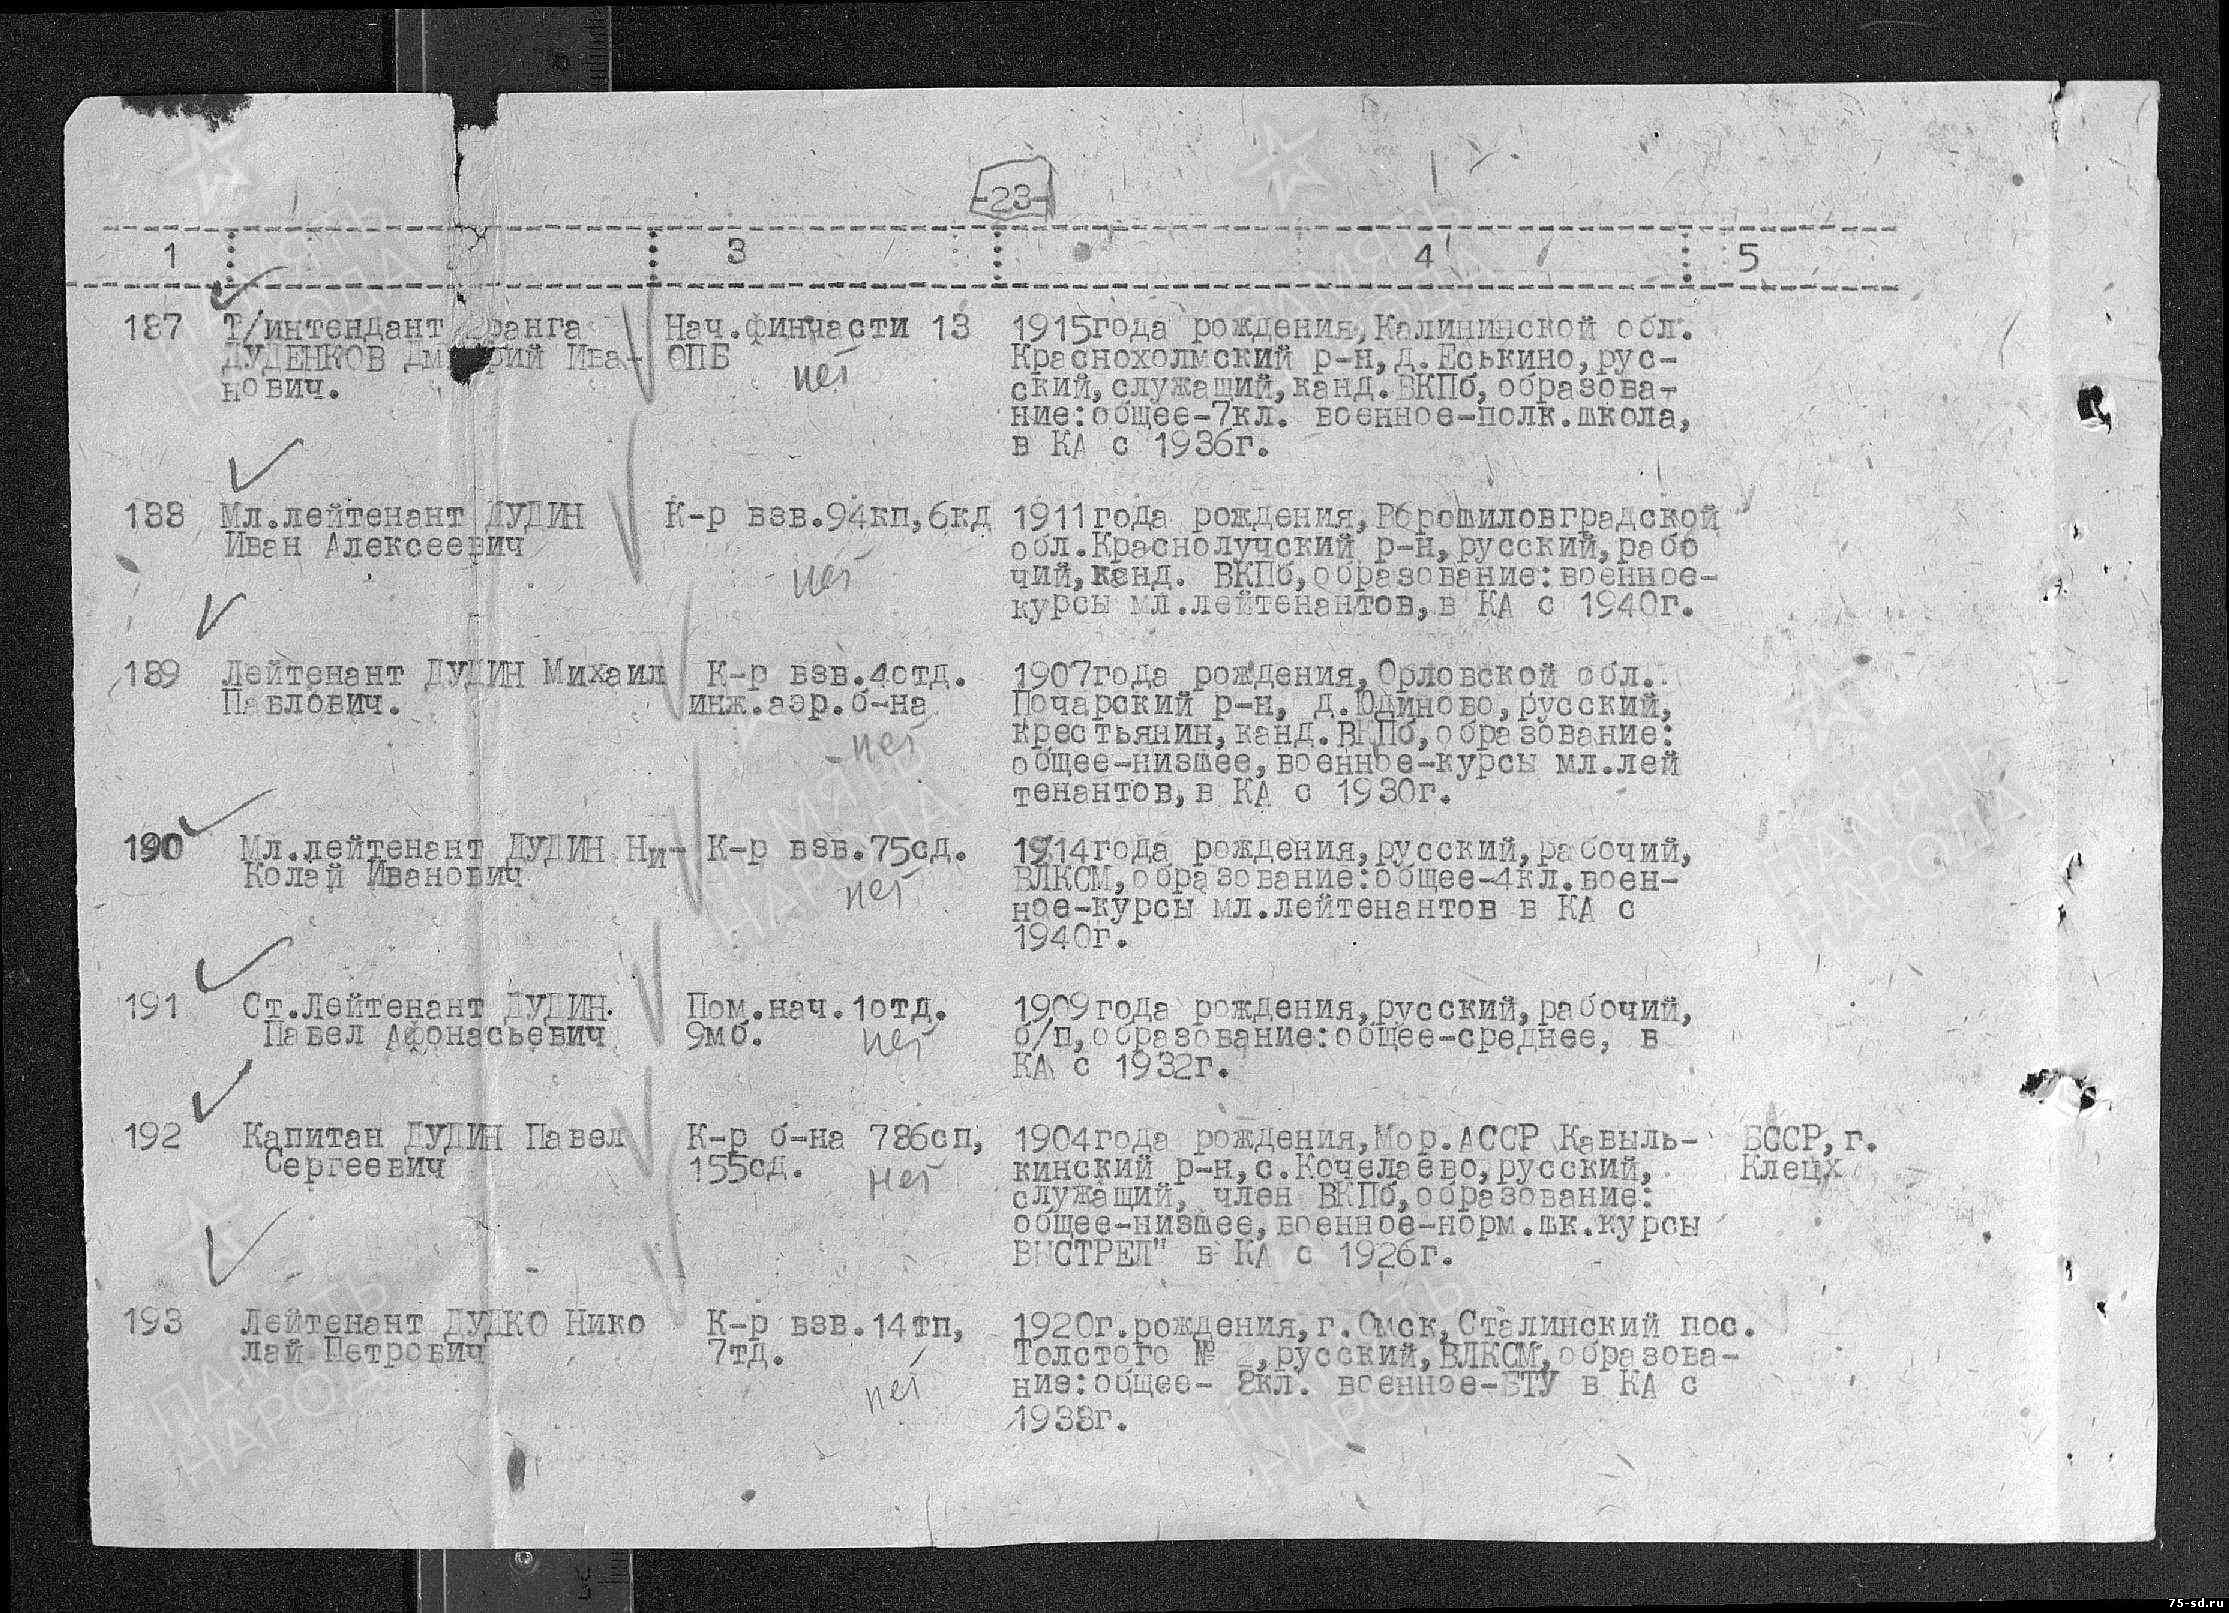 -23-
1 3 4 5
187 Т/интендант ранга Нач.финчасти 13 1915года рождения,Калининской обл.
ДУДЕНКОВ Дм рий Ива- ОПБ Краснохолмский р-н,д.Еськино,рус-
нович. нет ский,служащий,канд.ВКПб,образова-
ние:общее-7кл. военное-полк.школа,
в КА с 1936г.
188 Мл.лейтенант ДУДИН К-р взв.94кп,6кд 1911года рождения,Ворошиловградской
Иван Алексеевич обл.Краснолучский р-н,русский,рабо
нет чий,канд. ВКПб,образование:военное-
курсы мл.лейтенантов,в КА с 1940г.
189 Лейтенант ДУДИН Михаил К-р взв.4отд. 1907года рождения,Орловской обл.
Павлович. инж.аэр.б-на Почарский р-н, д.Юдиново,русский,
нет крестьянин,канд.ВКПб,образование:
общее-низшее,военное-курсы мл.лей
тенантов,в КА с 1930г.
190 Мл.лейтенант ДУДИН Ни- К-р взв.75сд. 1914года рождения,русский,рабочий,
колай Иванович нет ВЛКСМ,образование:общее-4кл.воен-
ное-курсы мл.лейтенантов в КА с
1940г.
191 Ст.Лейтенант ДУДИН Пом.нач.1отд. 1909года рождения,русский,рабочий,
Павел Афонасьевич 9мб. нет б/п,образование:общее-среднее, в
КА с 1932г.
192 Капитан ДУДИН Павел К-р б-на 786сп, 1904года рождения,Мор.АССР Кавыль- БССР,г.
Сергеевич 155сд. нет кинский р-н,с.Кочелаево,русский, Клецх
служащий, член ВКПб,образование:
общее-низшее,военное-норм.шк.курсы
ВЫСТРЕЛ" в КА с 1926г.
193 Лейтенант ДУДКО Нико К-р взв.14тп, 1920г.рождения,г.Омск,Сталинский пос.
лай Петрович 7тд. Толстого № ,русский,ВЛКСМ,образова-
нет ние:общее- 8кл. военное-БТУ в КА с
1938г.
ПАМЯТЬ
НАРОДА
75-sd.ru